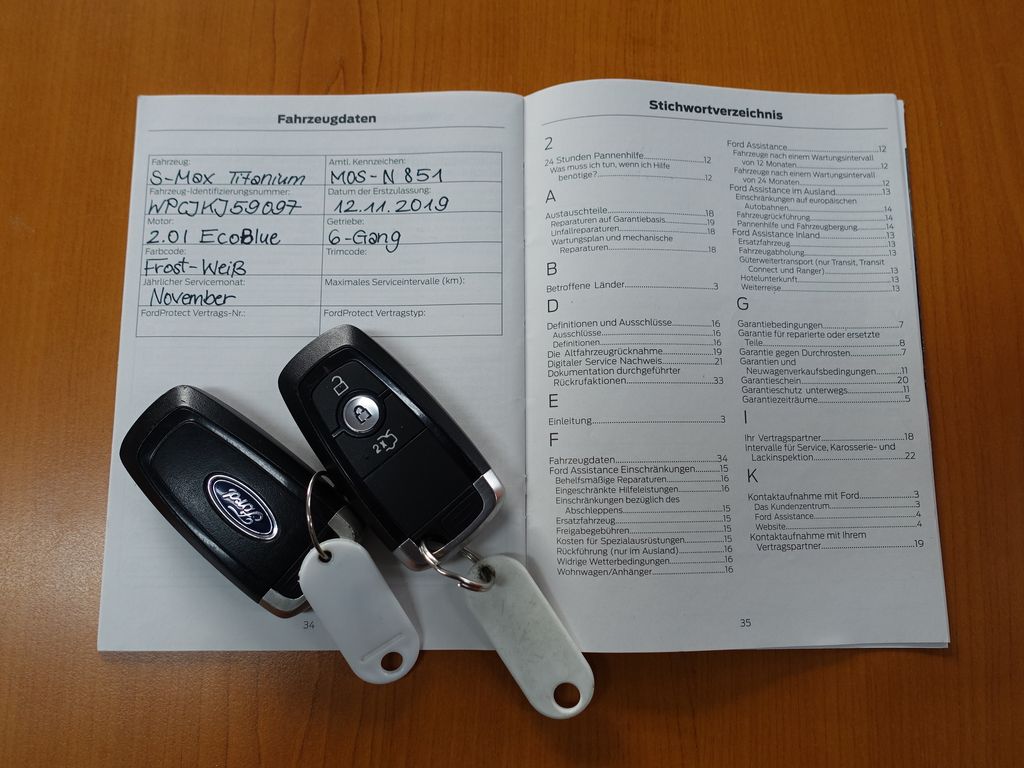 Fahrzeugdaten
Fahrzeug:
S-Max Titanium
Amtl. Kennzeichen:
MOS-N 851
Fahrzeug-Identifizierungsnummer:
WPCJKJ59097
Datum der Erstzulassung:
12.11.2019
Motor:
2.0l EcoBlue
Getriebe:
6-Gang
Farbcode:
Frost-Weiß
Trimcode:
Jährlicher Servicemonat:
November
Maximales Serviceintervalle (km):
FordProtect Vertrags-Nr.:
FordProtect Vertragstyp:
2x
Ford
34
Stichwortverzeichnis
2
24 Stunden Pannenhilfe 12
Was muss ich tun, wenn ich Hilfe
benötige? 12
A
Austauschteile 18
Reparaturen auf Garantiebasis 19
Unfallreparaturen 18
Wartungsplan und mechanische
Reparaturen 18
B
Betroffene Länder 3
D
Definitionen und Ausschlüsse 16
Ausschlüsse 16
Definitionen 16
Die Altfahrzeugrücknahme 19
Digitaler Service Nachweis 21
Dokumentation durchgeführter
Rückrufaktionen 33
E
Einleitung 3
F
Fahrzeugdaten 34
Ford Assistance Einschränkungen 15
Behelfsmäßige Reparaturen 16
Eingeschränkte Hilfeleistungen 16
Einschränkungen bezüglich des
Abschleppens 15
Ersatzfahrzeug 15
Freigabegebühren 15
Kosten für Spezialausrüstungen 15
Rückführung (nur im Ausland) 16
Widrige Wetterbedingungen 16
Wohnwagen/Anhänger 16
Ford Assistance 12
Fahrzeuge nach einem Wartungsintervall
von 12 Monaten 12
Fahrzeuge nach einem Wartungsintervall
von 24 Monaten 12
Ford Assistance im Ausland 13
Einschränkungen auf europäischen
Autobahnen 14
Fahrzeugrückführung 14
Pannenhilfe und Fahrzeugbergung 14
Ford Assistance Inland 13
Ersatzfahrzeug 13
Fahrzeugabholung 13
Güterweitertransport (nur Transit, Transit
Connect und Ranger) 13
Hotelunterkunft 13
Weiterreise 13
G
Garantiebedingungen 7
Garantie für reparierte oder ersetzte
Teile 8
Garantie gegen Durchrosten 7
Garantien und
Neuwagenverkaufsbedingungen 11
Garantieschein 20
Garantieschutz unterwegs 11
Garantiezeiträume 5
I
Ihr Vertragspartner 18
Intervalle für Service, Karosserie- und
Lackinspektion 22
K
Kontaktaufnahme mit Ford 3
Das Kundenzentrum 3
Ford Assistance 4
Website 4
Kontaktaufnahme mit Ihrem
Vertragspartner 19
35